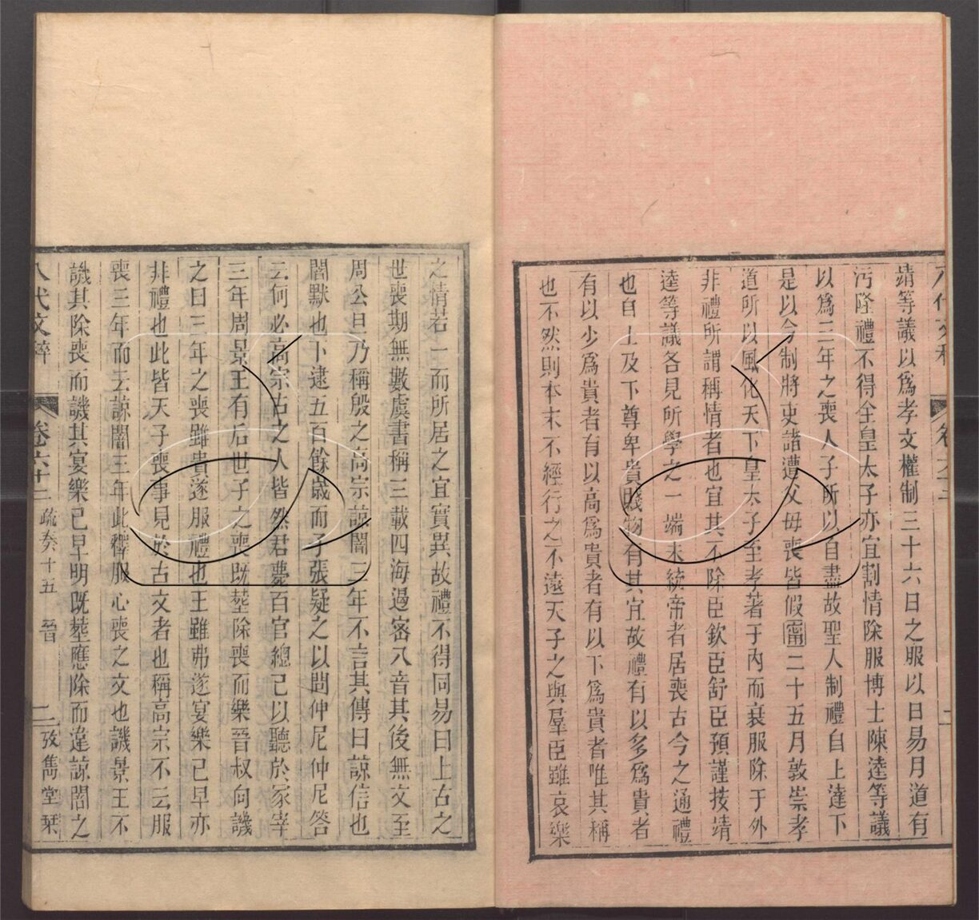 靖等議以爲孝文權制三十六日之服以日易月道有
污隆禮不得全皇太子亦宜割情除服博士陳逵等議
以爲三年之喪人子所以自盡故聖人制禮自上達下
是以今制將吏諸遭父母喪皆假寧二十五月敦崇孝
道所以風化天下皇太子至孝著于內而衰服除于外
非禮所謂稱情者也宜其不除臣欽臣舒臣預謹按靖
逵等議各見所學之一端未統帝者居喪古今之通禮
也自上及下尊卑貴賤物有其宜故禮有以多爲貴者
有以少爲貴者有以高爲貴者有以下爲貴者唯其稱
也不然則本末不經行之不遠天子之與羣臣雖哀樂
之情若一而所居之宜實異故禮不得同易曰上古之
世喪期無數虞書稱三載四海遏密八音其後無文至
周公旦乃稱殷之高宗諒闇三年不言其傳曰諒信也
闇默也下逮五百餘歲而子張疑之以問仲尼仲尼答
云何必高宗古之人皆然君薨百官總己以聽於冢宰
三年周景王有后世子之喪既塟除喪而樂晉叔向譏
之曰三年之喪雖貴遂服禮也王雖弗遂宴樂已早亦
非禮也此皆天子喪事見於古文者也稱高宗不云服
喪三年而云諒闇三年此釋服心喪之文也譏景王不
譏其除喪而譏其宴樂已早明既塟應除而違諒闇之
八代文粹 卷六十三 疏奏十五 晉 二 攷雋堂栞